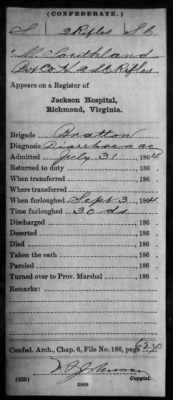 (CONFEDERATE.)
S 2 Rifles S C
Pvt Co K 2 S.C. Rifles
Appears on a Register of
Jackson Hospital,
Richmond, Virginia.
Brigade Bratton
Diagnosis Diarrhoea ac
Admitted July 31 1864
Returned to duty 186 .
When transferred 186 .
Where transferred
When furloughed Sept 3 1864
Time furloughed 30 ds
Discharged 186 .
Deserted 186 .
Died 186 .
Taken the oath 186 .
Paroled 186 .
Turned over to Prov. Marshal 186 .
Remarks:
Confed. Arch., Chap. 6, File No. 186, page 624
(635) Copyist.